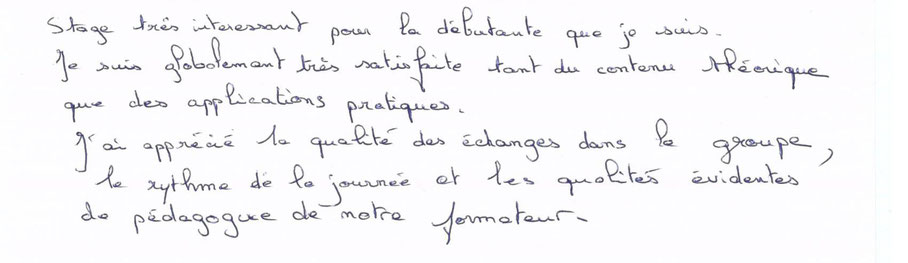 Stage très interessant pour la débutante que je suis.
Je suis globalement très satisfaite tant du contenu théorique
que des applications pratiques.
J'ai apprécié la qualité des échanges dans le groupe,
le rythme de la journée et les qualités évidentes
de pédagogue de notre formateur.